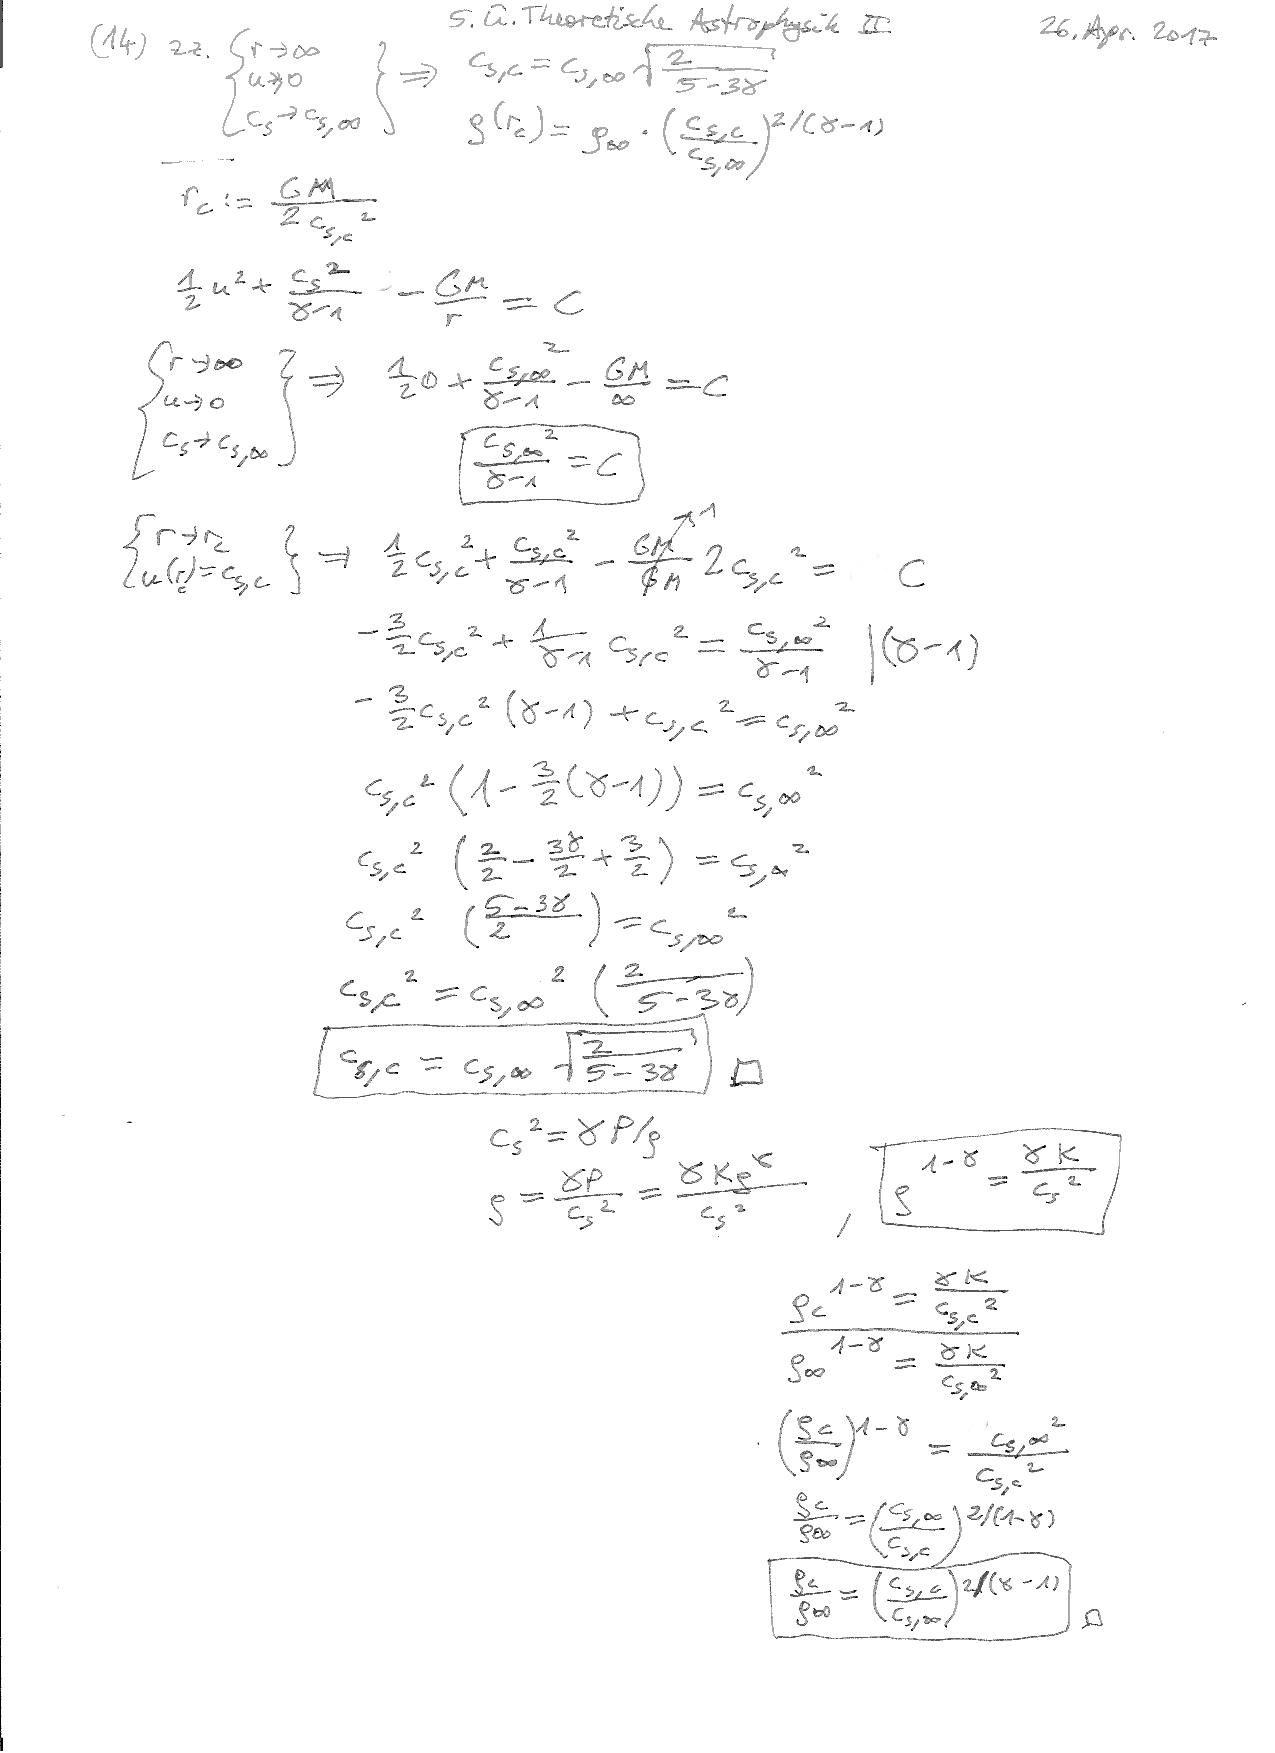 5. Ü. Theoretische Astrophysik II 26. Apr. 2017
(14) zz. {r→∞ u→0 c_s→c_{s,∞}} ⇒ c_{s,c} = c_{s,∞} √(2/(5-3γ))
ρ(r_c) = ρ_∞ · (c_{s,c}/c_{s,∞})^{2/(γ-1)}
r_c := GM/(2c_{s,c}²)
1/2 u² + c_s²/(γ-1) - GM/r = C
{r→∞ u→0 c_s→c_{s,∞}} ⇒ 1/2 0 + c_{s,∞}²/(γ-1) - GM/∞ = C
c_{s,∞}²/(γ-1) = C
{r→r_c u(r_c)=c_{s,c}} ⇒ 1/2 c_{s,c}² + c_{s,c}²/(γ-1) - GM/GM ↗1 2c_{s,c}² = C
-3/2 c_{s,c}² + 1/(γ-1) c_{s,c}² = c_{s,∞}²/(γ-1) |(γ-1)
-3/2 c_{s,c}² (γ-1) + c_{s,c}² = c_{s,∞}²
c_{s,c}² (1 - 3/2(γ-1)) = c_{s,∞}²
c_{s,c}² (2/2 - 3γ/2 + 3/2) = c_{s,∞}²
c_{s,c}² ((5-3γ)/2) = c_{s,∞}²
c_{s,c}² = c_{s,∞}² (2/(5-3γ))
c_{s,c} = c_{s,∞} √(2/(5-3γ)) □
c_s² = γP/ρ
ρ = γP/c_s² = γKρ^γ/c_s² , ρ^{1-γ} = γK/c_s²
ρ_c^{1-γ} = γK/c_{s,c}²
ρ_∞^{1-γ} = γK/c_{s,∞}²
(ρ_c/ρ_∞)^{1-γ} = c_{s,∞}²/c_{s,c}²
ρ_c/ρ_∞ = (c_{s,∞}/c_{s,c})^{2/(1-γ)}
ρ_c/ρ_∞ = (c_{s,c}/c_{s,∞})^{2/(γ-1)} □